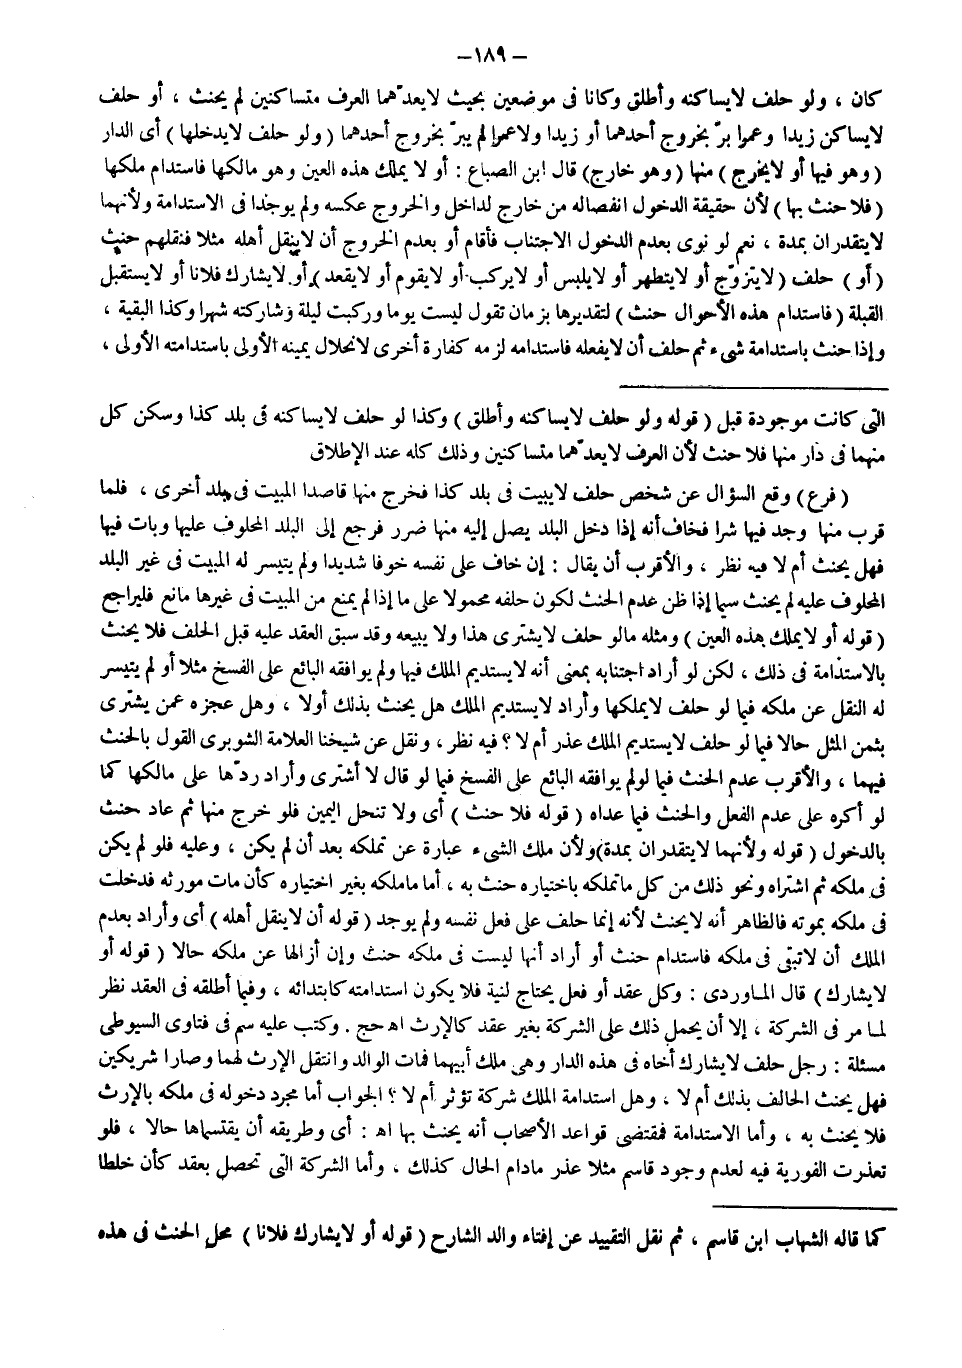 – ١٨٩ –
كان ، ولو حلف لايساكنه وأطلق وكانا فى موضعين بحيث لايعدّهما العرف متساكنين لم يحنث ، أو حلف
لايساكن زيدا وعمرا برّ بخروج أحدهما أو زيدا ولاعمرا لم يبرّ بخروج أحدهما ( ولو حلف لايدخلها ) أى الدار
( وهو فيها أو لايخرج ) منها ( وهو خارج ) قال ابن الصباغ : أو لا يملك هذه العين وهو مالكها فاستدام ملكها
( فلا حنث بها ) لأن حقيقة الدخول انفصاله من خارج لداخل والخروج عكسه ولم يوجدا فى الاستدامة ولأنهما
لايتقدران بمدة ، نعم لو نوى بعدم الدخول الاجتناب فأقام أو بعدم الخروج أن لاينقل أهله مثلا فنقلهم حنث
( أو ) حلف ( لايتزوّج أو لايتطهر أو لايلبس أو لايركب أو لايقوم أو لايقعد ) أو لايشارك فلانا أو لايستقبل
القبلة ( فاستدام هذه الأحوال حنث ) لتقديرها بزمان تقول لبست يوما وركبت ليلة وشاركته شهرا وكذا البقية ،
وإذا حنث باستدامة شىء ثم حلف أن لايفعله فاستدامه لزمه كفارة أخرى لانحلال يمينه الأولى باستدامته الأولى ،
التى كانت موجودة قبل ( قوله ولو حلف لايساكنه وأطلق ) وكذا لو حلف لايساكنه فى بلد كذا وسكن كل
منهما فى دار منها فلا حنث لأن العرف لايعدّهما متساكنين وذلك كله عند الإطلاق
( فرع ) وقع السؤال عن شخص حلف لايبيت فى بلد كذا فخرج منها قاصدا المبيت فى بلد أخرى ، فلما
قرب منها وجد فيها شرا فخاف أنه إذا دخل البلد يصل إليه منها ضرر فرجع إلى البلد المحلوف عليها وبات فيها
فهل يحنث أم لا فيه نظر ، والأقرب أن يقال : إن خاف على نفسه خوفا شديدا ولم يتيسر له المبيت فى غير البلد
المحلوف عليه لم يحنث سيما إذا ظن عدم الحنث لكون حلفه محمولا على ما إذا لم يمنع من المبيت فى غيرها مانع فليراجع
( قوله أو لايملك هذه العين ) ومثله مالو حلف لايشترى هذا ولا يبيعه وقد سبق العقد عليه قبل الحلف فلا يحنث
بالاستدامة فى ذلك ، لكن لو أراد اجتنابه بمعنى أنه لايستديم الملك فيها ولم يوافقه البائع على الفسخ مثلا أو لم يتيسر
له النقل عن ملكه فيما لو حلف لايملكها وأراد لايستديم الملك هل يحنث بذلك أولا ، وهل عجزه عمن يشترى
بثمن المثل حالا فيما لو حلف لايستديم الملك عذر أم لا ؟ فيه نظر ، ونقل عن شيخنا العلامة الشوبرى القول بالحنث
فيهما ، والأقرب عدم الحنث فيما لولم يوافقه البائع على الفسخ فيما لو قال لا أشترى وأراد ردّها على مالكها كما
لو أكره على عدم الفعل والحنث فيما عداه ( قوله فلا حنث ) أى ولا تنحل اليمين فلو خرج منها ثم عاد حنث
بالدخول ( قوله ولأنهما لايتقدران بمدة) ولأن ملك الشىء عبارة عن تملكه بعد أن لم يكن ، وعليه فلو لم يكن
فى ملكه ثم اشتراه ونحو ذلك من كل ماتملكه باختياره حنث به ، أما ماملكه بغير اختياره كأن مات مورثه فدخلت
فى ملكه بموته فالظاهر أنه لايحنث لأنه إنما حلف على فعل نفسه ولم يوجد ( قوله أن لاينقل أهله ) أى وأراد بعدم
الملك أن لاتبقى فى ملكه فاستدام حنث أو أراد أنها ليست فى ملكه حنث وإن أزالها عن ملكه حالا ( قوله أو
لايشارك ) قال الماوردى : وكل عقد أو فعل يحتاج لنية فلا يكون استدامته كابتدائه ، وفيما أطلقه فى العقد نظر
لما مر فى الشركة ، إلا أن يحمل ذلك على الشركة بغير عقد كالإرث اهحج . وكتب عليه سم فى فتاوى السيوطى
مسئلة : رجل حلف لايشارك أخاه فى هذه الدار وهى ملك أبيهما فمات الوالد وانتقل الإرث لهما وصارا شريكين
فهل يحنث الحالف بذلك أم لا ، وهل استدامة الملك شركة تؤثر أم لا ؟ الجواب أما مجرد دخوله فى ملكه بالإرث
فلا يحنث به ، وأما الاستدامة فمقتضى قواعد الأصحاب أنه يحنث بها اه : أى وطريقه أن يقتسماها حالا ، فلو
تعذرت الفورية فيه لعدم وجود قاسم مثلا عذر مادام الحال كذلك ، وأما الشركة التى تحصل بعقد كأن خلطا
كما قاله الشهاب ابن قاسم ، ثم نقل التقييد عن إفتاء والد الشارح ( قوله أو لايشارك فلانا ) محل الحنث فى هذه